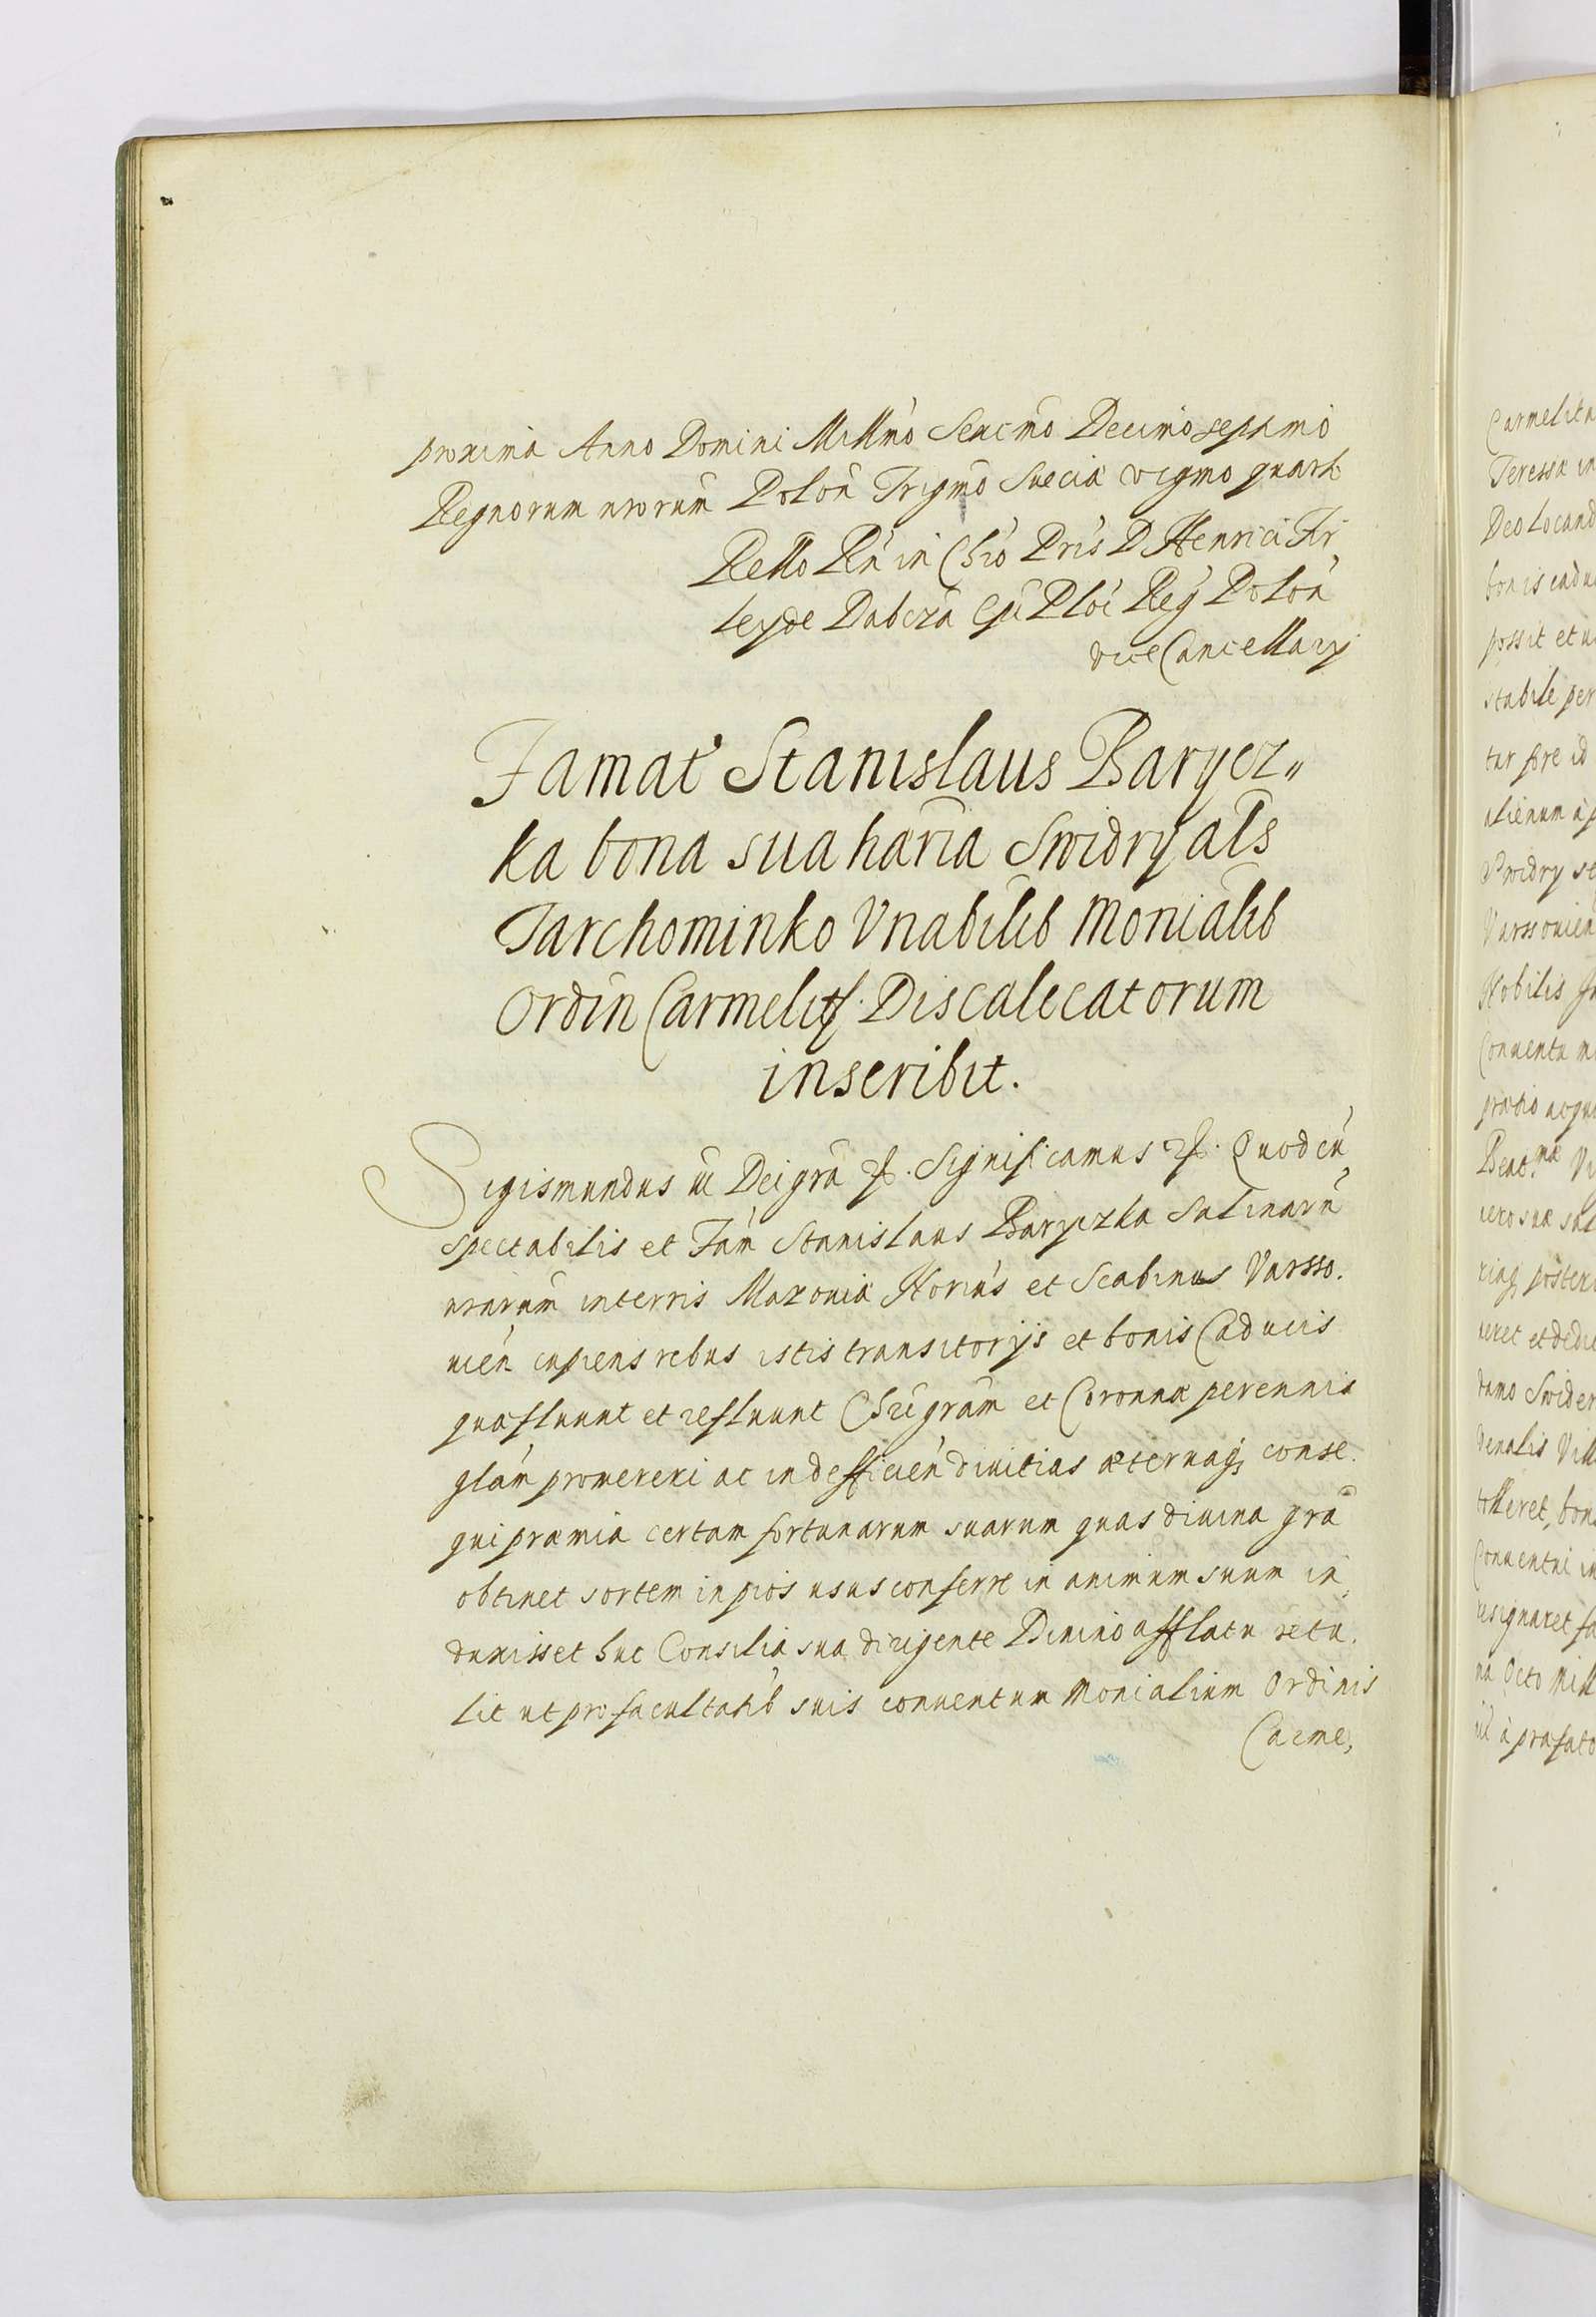 proxima Anno Domini Millm̃o Sexcm̃o Decimo septimo
Regnorum nrorum̃ Polon̄ Trigm̃o Sueciæ vigm̃o quarto
Rello Rn̄ in Chr̃o Pr̃is D Henrici Fir,
ley de Dabrza Epĩ Ploc̃ Reg̃ Polon̄
vice Cancellarÿ
Famat̕ Stanislaus Barycz„
ka bona sua hār̃ia Swidry al̃s
Tarchominko Vnabilib Monialib
Ordin̄ Carmelit. Discalecatorum
inscribit.
Sigismundus iii Dei grã &. Significamus &. Quod cū
spectabilis et Fam̃ Stanislaus Baryczka Salinarū
nrarum̃ in terris Mazoviæ Noriũs et Scabinus Varsso.
uien̄ cupiens rebus istis transitorijs et bonis Caducis
quæ fluunt et refluunt Chr̃i gram̃ et Coronnæ perennis
glam̃ promereri ac indefficien̄ diuitias æternaq, conse.
qui præmia certam fortunarum suarum quas diuina grã
obtinet sortem in pios usus conferre in animum suum in,
duxisset huc Consilia sua dirigente Diuino afflatu retu.
lit ut pro facultatib suis conuentum Monialium Ordinis
Carme,
Carmelita
Teressæ in
Deo locand
bonis cadu
possit et u
stabile per
tur fore id
alienum a p
Swidry se
Varssouien
Nobilis
Conuentu m
prætio
Beat.mæ Vi
uero suæ sal
riaq, poster
ueret et dedic
damo Swider
denalis Vill
tolleret, bona
Conuentui in
resignaret fa
na Octo Mill
a præfato